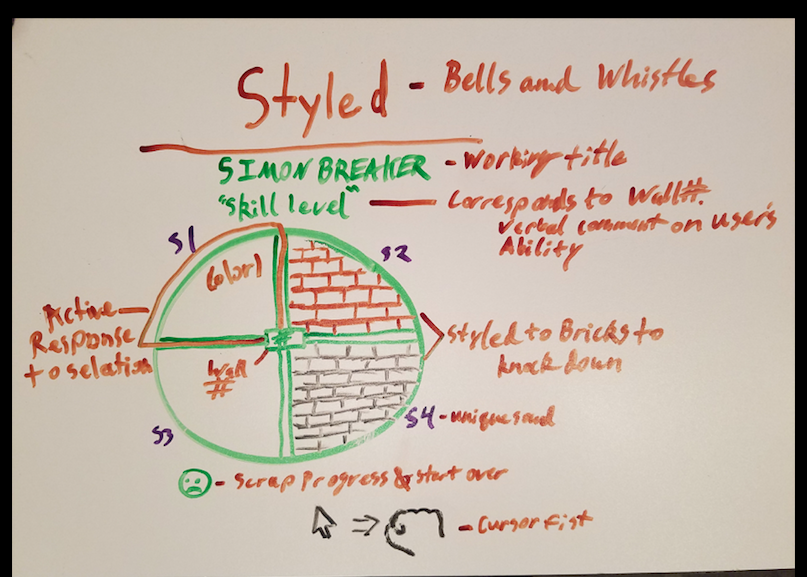 Styled - Bells and Whistles
SIMON BREAKER - Working title
"Skill level" — Corresponds to Wall#.
Verbal comment on user's
Ability
S1
S2
Color1
Active
Response
to selation
#
Wall
#
Styled to Bricks to
knock down
S3
S4 - unique sound
- Scrap Progress & start over
- Cursor Fist